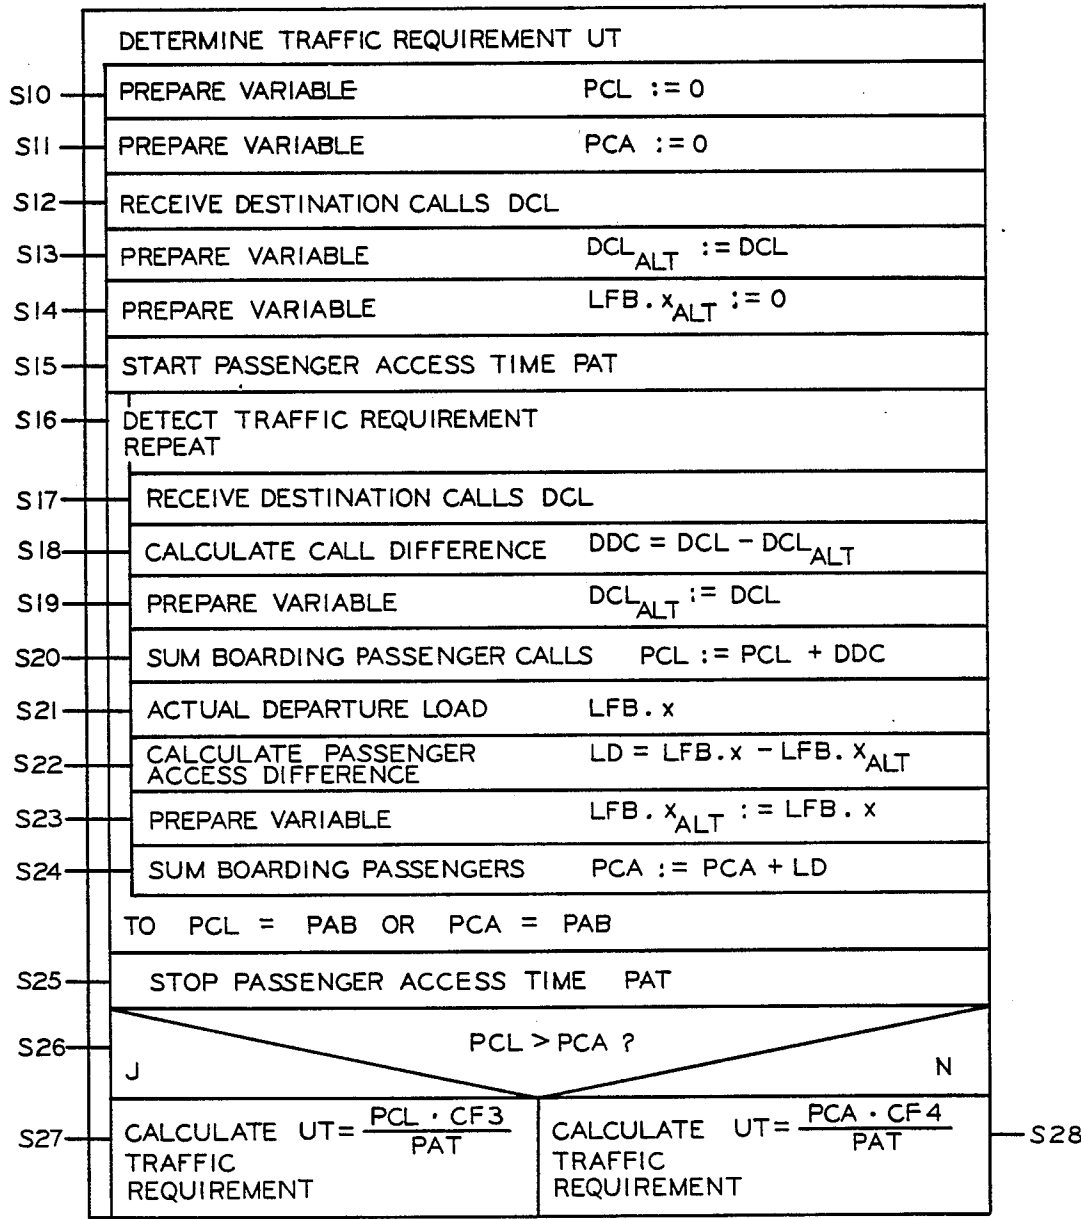 DETERMINE TRAFFIC REQUIREMENT UT
S10 PREPARE VARIABLE PCL := 0
S11 PREPARE VARIABLE PCA := 0
S12 RECEIVE DESTINATION CALLS DCL
S13 PREPARE VARIABLE DCL ALT := DCL
S14 PREPARE VARIABLE LFB.x ALT := 0
S15 START PASSENGER ACCESS TIME PAT
S16 DETECT TRAFFIC REQUIREMENT
REPEAT
S17 RECEIVE DESTINATION CALLS DCL
S18 CALCULATE CALL DIFFERENCE DDC = DCL - DCL ALT
S19 PREPARE VARIABLE DCL ALT := DCL
S20 SUM BOARDING PASSENGER CALLS PCL := PCL + DDC
S21 ACTUAL DEPARTURE LOAD LFB.x
S22 CALCULATE PASSENGER
ACCESS DIFFERENCE LD = LFB.x - LFB.x ALT
S23 PREPARE VARIABLE LFB.x ALT := LFB.x
S24 SUM BOARDING PASSENGERS PCA := PCA + LD
TO PCL = PAB OR PCA = PAB
S25 STOP PASSENGER ACCESS TIME PAT
S26 PCL > PCA ?
J N
S27 CALCULATE UT= PCL · CF3 / PAT
TRAFFIC
REQUIREMENT
CALCULATE UT= PCA · CF4 / PAT S28
TRAFFIC
REQUIREMENT